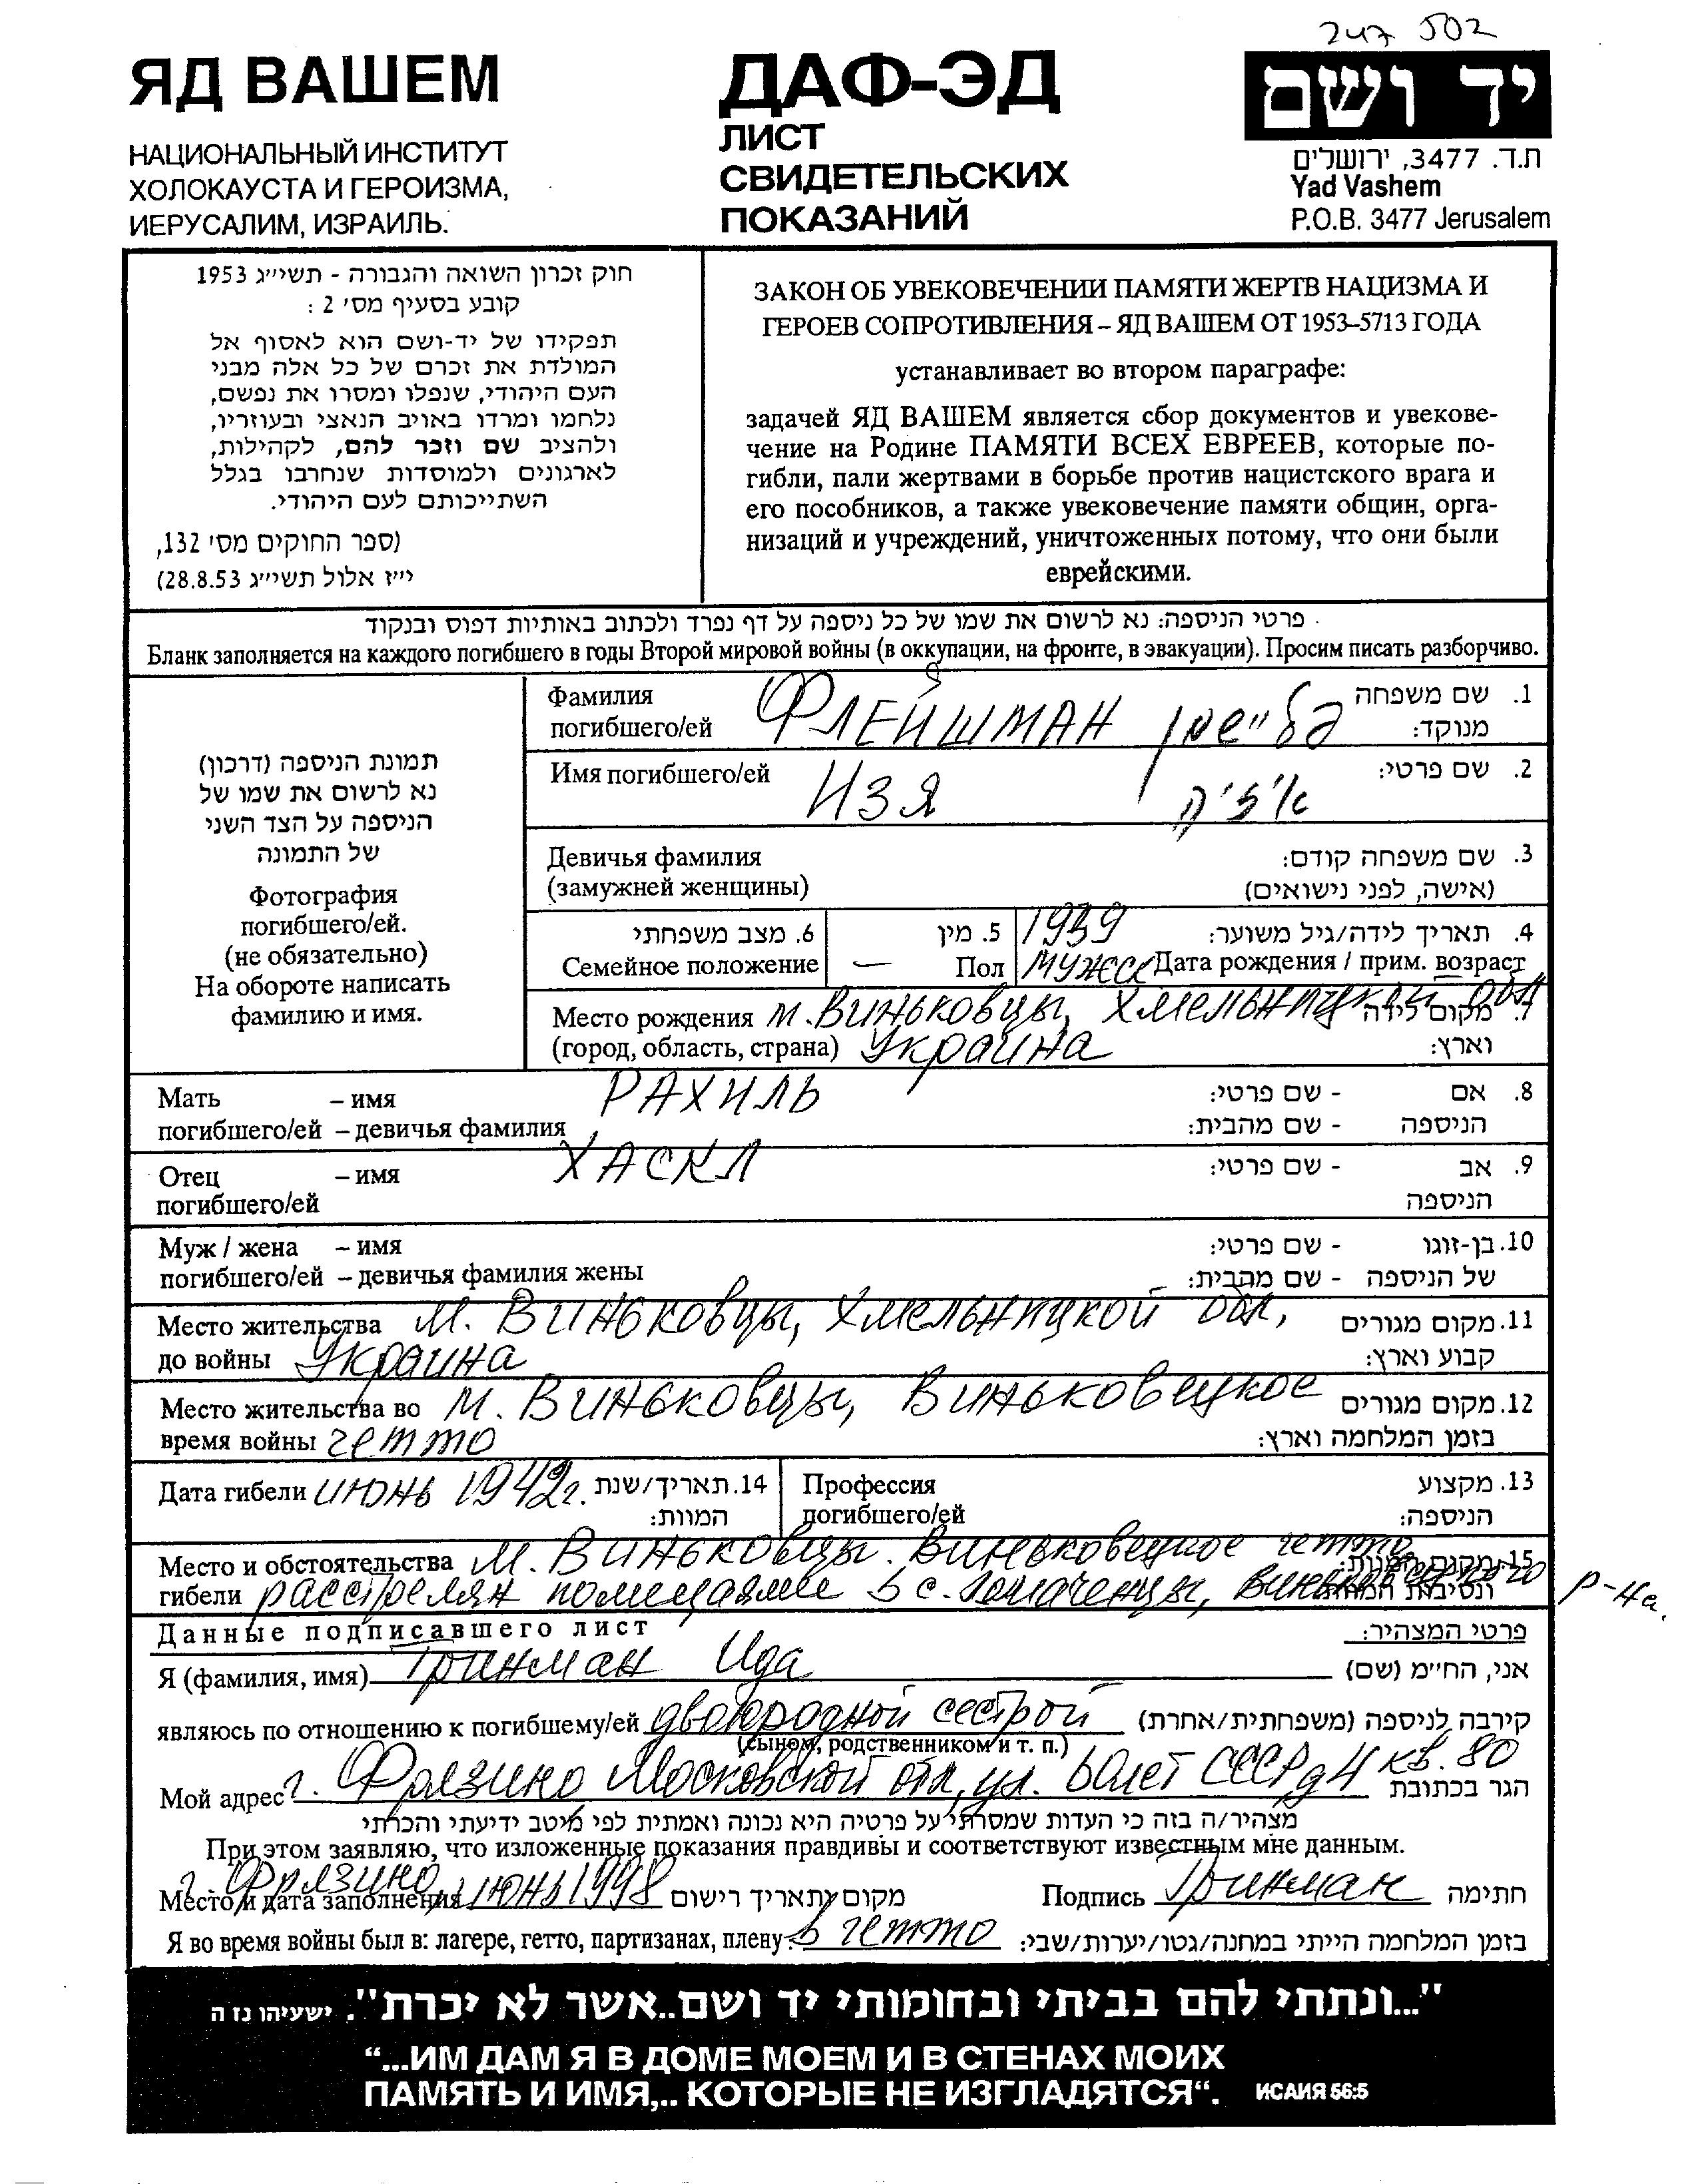 247 502
ЯД ВАШЕМ
НАЦИОНАЛЬНЫЙ ИНСТИТУТ
ХОЛОКАУСТА И ГЕРОИЗМА,
ИЕРУСАЛИМ, ИЗРАИЛЬ.
ДАФ-ЭД
ЛИСТ
СВИДЕТЕЛЬСКИХ
ПОКАЗАНИЙ
יד ושם
ת.ד. 3477, ירושלים
Yad Vashem
P.O.B. 3477 Jerusalem
חוק זכרון השואה והגבורה - תשי״ג 1953
קובע בסעיף מס' 2 :
תפקידו של יד-ושם הוא לאסוף אל
המולדת את זכרם של כל אלה מבני
העם היהודי, שנפלו ומסרו את נפשם,
נלחמו ומרדו באויב הנאצי ובעוזריו,
ולהציב שם וזכר להם, לקהילות,
לארגונים ולמוסדות שנחרבו בגלל
השתייכותם לעם היהודי.
(ספר החוקים מס' 132,
י״ז אלול תשי״ג 28.8.53)
ЗАКОН ОБ УВЕКОВЕЧЕНИИ ПАМЯТИ ЖЕРТВ НАЦИЗМА И
ГЕРОЕВ СОПРОТИВЛЕНИЯ – ЯД ВАШЕМ ОТ 1953–5713 ГОДА
устанавливает во втором параграфе:
задачей ЯД ВАШЕМ является сбор документов и увекове-
чение на Родине ПАМЯТИ ВСЕХ ЕВРЕЕВ, которые по-
гибли, пали жертвами в борьбе против нацистского врага и
его пособников, а также увековечение памяти общин, орга-
низаций и учреждений, уничтоженных потому, что они были
еврейскими.
פרטי הניספה: נא לרשום את שמו של כל ניספה על דף נפרד ולכתוב באותיות דפוס ובנקוד
Бланк заполняется на каждого погибшего в годы Второй мировой войны (в оккупации, на фронте, в эвакуации). Просим писать разборчиво.
תמונת הניספה (דרכון)
נא לרשום את שמו של
הניספה על הצד השני
של התמונה
Фотография
погибшего/ей.
(не обязательно)
На обороте написать
фамилию и имя.
Фамилия ФЛЕЙШМАН פליישמן 1. שם משפחה
погибшего/ей מנוקד:
Имя погибшего/ей ИЗЯ איז'יק 2. שם פרטי:
Девичья фамилия 3. שם משפחה קודם:
(замужней женщины) (אישה, לפני נישואים)
6. מצב משפחתי 5. מין 1939 4. תאריך לידה/גיל משוער:
Семейное положение — Пол мужск Дата рождения / прим. возраст
Место рождения м. Виньковцы, Хмельницкой обл 7. מקום לידה
(город, область, страна) Украина וארץ:
Мать – имя РАХИЛЬ 8. אם - שם פרטי:
погибшего/ей – девичья фамилия הניספה - שם מהבית:
Отец – имя ХАСКЛ 9. אב - שם פרטי:
погибшего/ей הניספה
Муж / жена – имя 10. בן-זוגו - שם פרטי:
погибшего/ей – девичья фамилия жены של הניספה - שם מהבית:
Место жительства м. Виньковцы, Хмельницкой обл, 11. מקום מגורים
до войны Украина קבוע וארץ:
Место жительства во м. Виньковцы, Виньковецкое 12. מקום מגורים
время войны гетто בזמן המלחמה וארץ:
Дата гибели июнь 1942г. 14. תאריך/שנת Профессия 13. מקצוע
המוות: погибшего/ей הניספה:
Место и обстоятельства м. Виньковцы. Виньковецкое гетто 15. מקום המוות:
гибели расстрелян полицаями в с. Виньковецкого р-на. ונסיבות המוות:
Данные подписавшего лист פרטי המצהיר:
Я (фамилия, имя) Гринман Ида אני, הח״מ (שם)
являюсь по отношению к погибшему/ей двоюродной сестрой קירבה לניספה (משפחתית/אחרת)
(сыном, родственником и т. п.)
Мой адрес г. Фрязино Московской обл, ул. 60 лет СССР д4 кв. 80 הגר בכתובת
מצהיר/ה בזה כי העדות שמסרתי על פרטיה היא נכונה ואמתית לפי מיטב ידיעתי והכרתי
При этом заявляю, что изложенные показания правдивы и соответствуют известным мне данным.
Место и дата заполнения г. Фрязино, июнь 1998 מקום ותאריך רישום Подпись Гринман חתימה
Я во время войны был в: лагере, гетто, партизанах, плену: в гетто בזמן המלחמה הייתי במחנה/גטו/יערות/שבי:
"...ונתתי להם בביתי ובחומותי יד ושם..אשר לא יכרת". ישעיהו נז ה
“...ИМ ДАМ Я В ДОМЕ МОЕМ И В СТЕНАХ МОИХ
ПАМЯТЬ И ИМЯ,.. КОТОРЫЕ НЕ ИЗГЛАДЯТСЯ“. ИСАИЯ 56:5